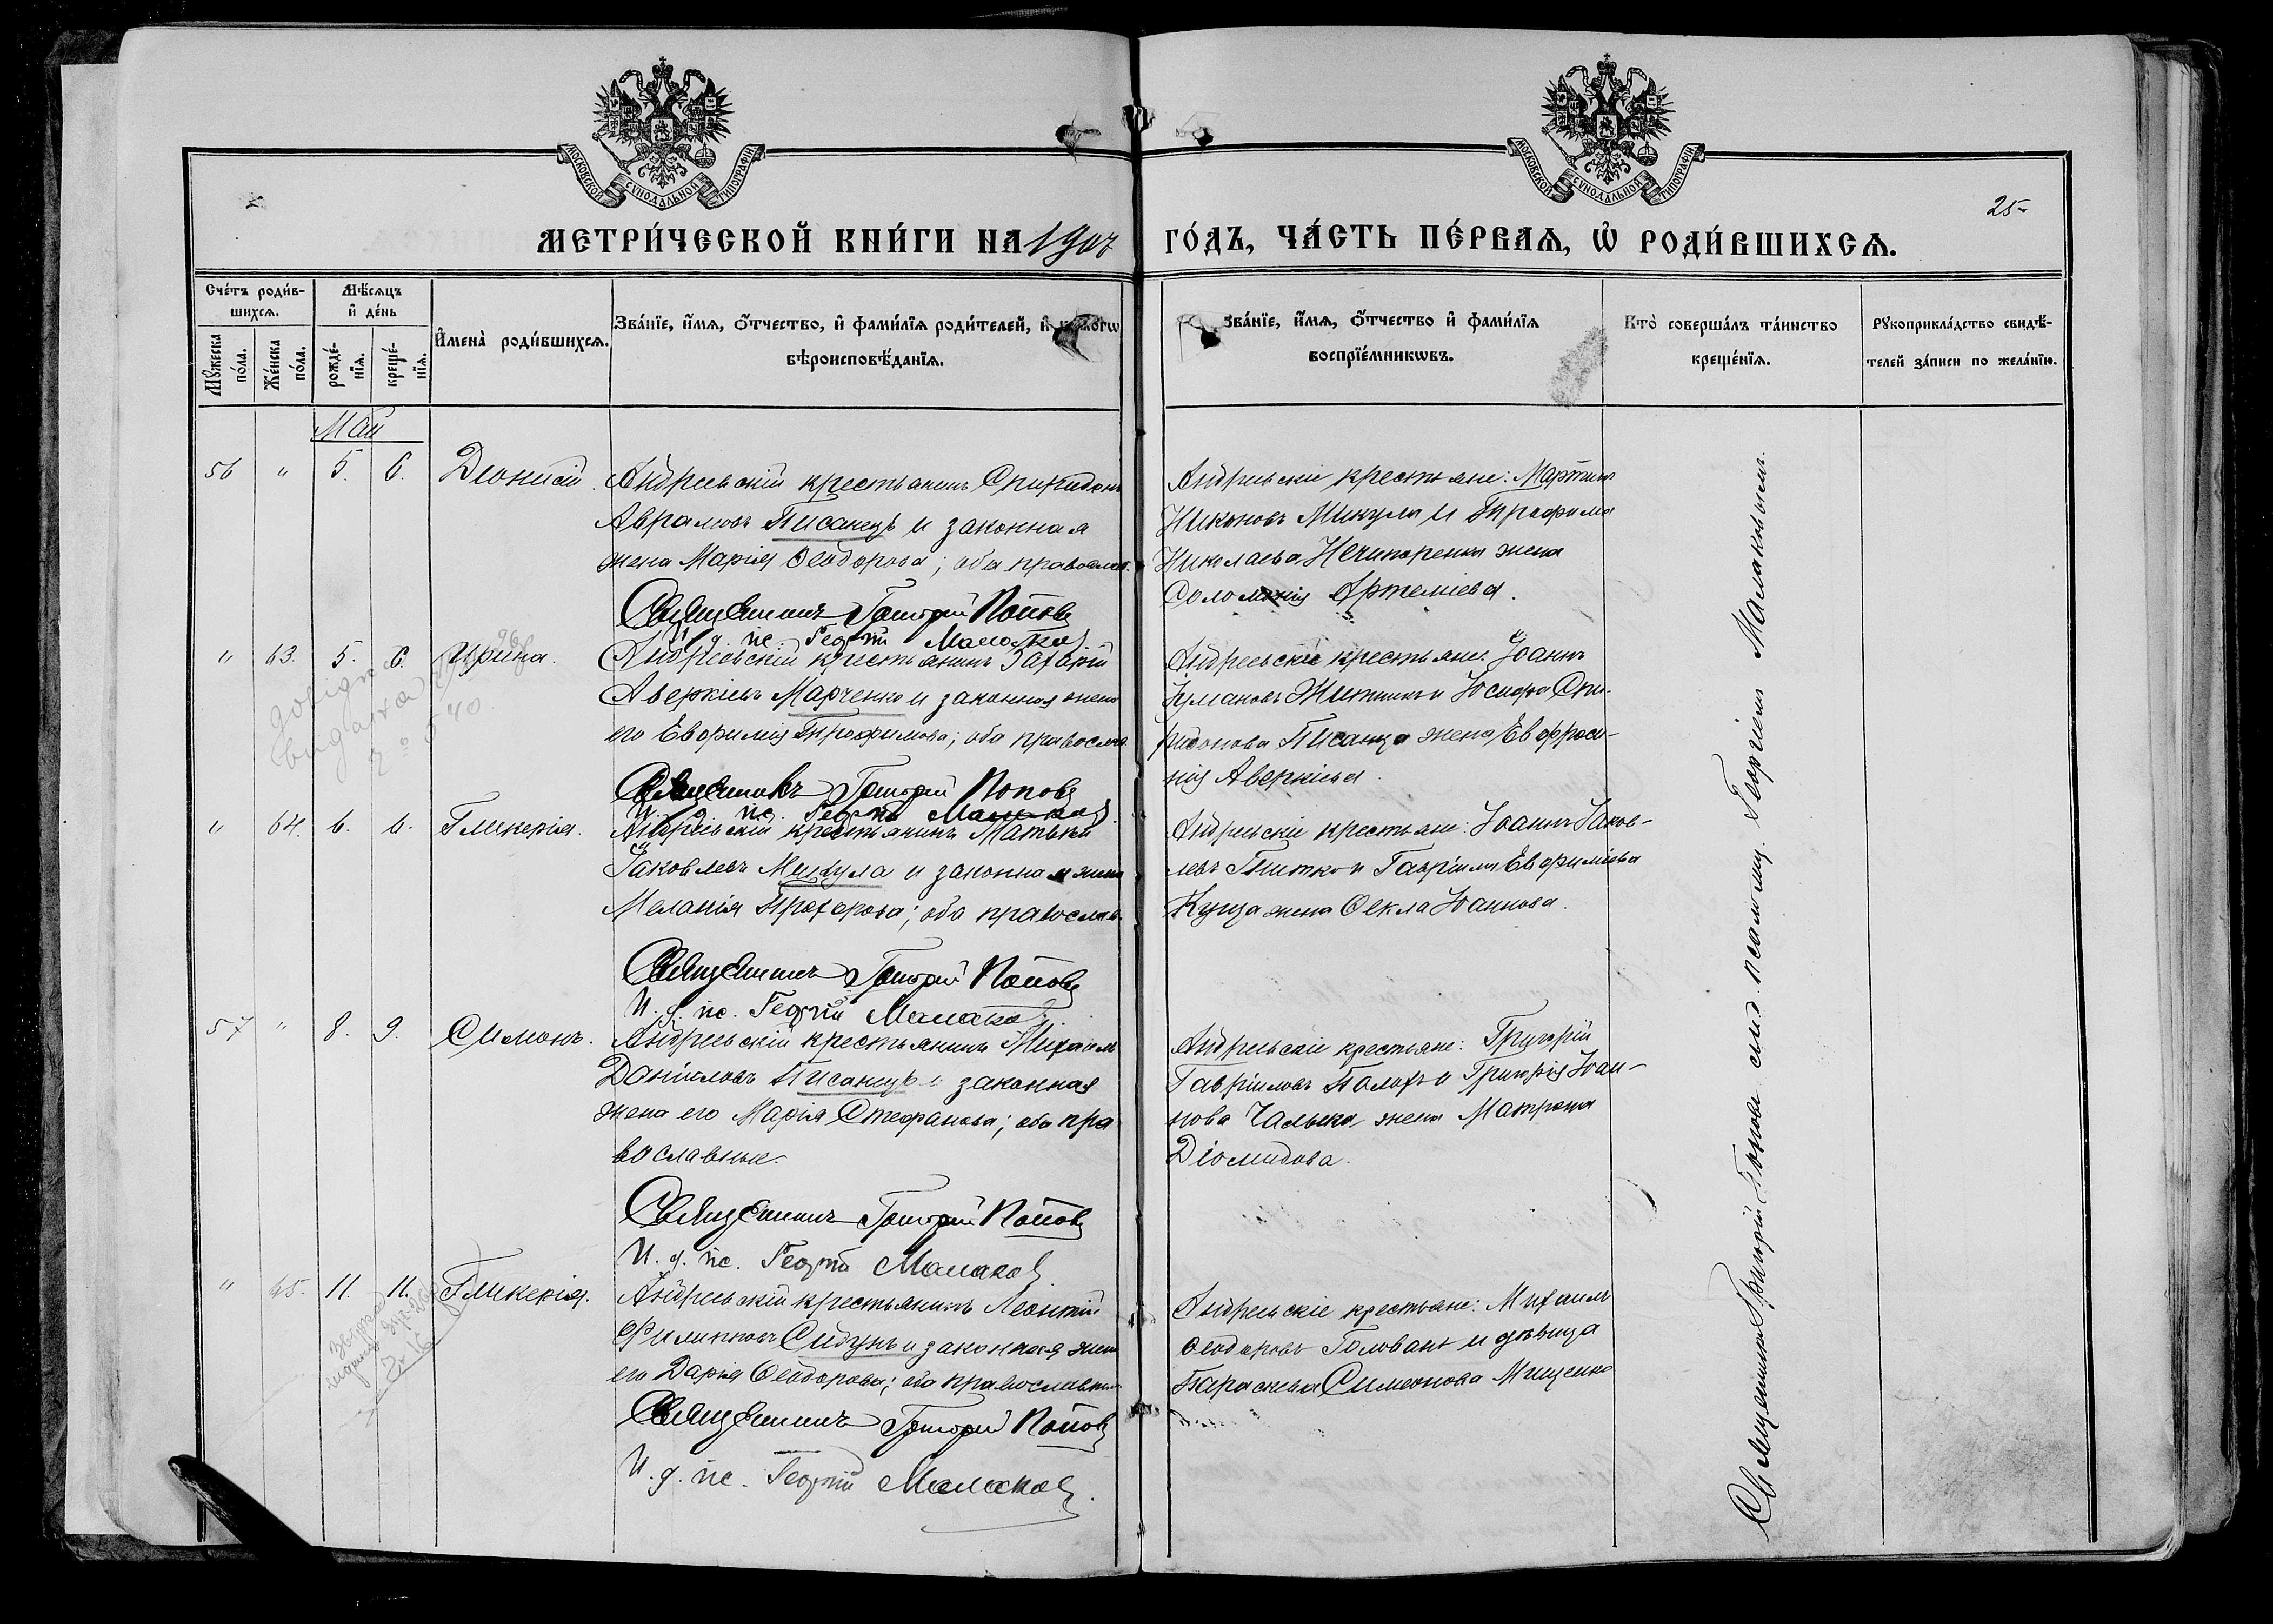 МОСКОВСКОЙ СѴНОДАЛЬНОЙ ТИПОГРАФІИ
МОСКОВСКОЙ СѴНОДАЛЬНОЙ ТИПОГРАФІИ
25
МЕТРИ́ЧЕСКОЙ КНИ́ГИ НА 1907
ГО́ДЪ, ЧА́СТЬ ПЕ́РВАѦ, Ѡ҆ РОДИ́ВШИХСѦ.
Сче́тъ роди́в-
шихсѧ.
Мꙋ́жеска
по́ла.
Же́нска
по́ла.
Мѣ́сѧцъ
и҆ де́нь
рожде́-
нїѧ.
креще́-
нїѧ.
И҆мена̀ роди́вшихсѧ.
Зва́нїе, и҆́мѧ, ѻ҆́тчество, и҆ фами́лїѧ роди́телей, и҆
вѣроисповѣ́данїѧ.
Зва́нїе, и҆́мѧ, ѻ҆́тчество и҆ фами́лїѧ
воспрїе́мникѡвъ.
Кто̀ соверша́лъ та́инство
креще́нїѧ.
Рꙋкоприкла́дство свидѣ́-
телей за́писи по жела́нїю.
Май
56 " 5. 6. Діонисій.
Андреевскій крестьянинъ Спиридонъ
Аврамовъ Писанецъ и законная
жена Марія Ѳеодорова; оба православ.
Священникъ Григорій Поповъ
И. д. пс. Георгій Малаковъ
Андреевскіе крестьяне: Мартинъ
Никоновъ Микула и Трофима
Николаева Нечипоренка жена
Соломонія Артеміева.
" 63. 5. 6. Ирина.
Андреевскій крестьянинъ Захарій
Аверкіевъ Марченко и законная жена
его Евфимія Трофимова; оба православ.
Священникъ Григорій Поповъ
И. д. пс. Георгій Малаковъ
Андреевскіе крестьяне: Іоаннъ
Житникъ и Іосифа Спи-
ридонова Писанца жена Евфроси-
нія Аверкіева.
" 64. 6. 6. Гликерія.
Андреевскій крестьянинъ Матвѣй
Іаковлевъ Микула и законная жена
Меланія Прохорова; оба православ.
Священникъ Григорій Поповъ
И. д. пс. Георгій Малаковъ
Андреевскіе крестьяне: Іоаннъ Іаков-
левъ и Гавріила Евфиміева
Купца жена Ѳекла Іоаннова.
57 " 8. 9. Симонъ.
Андреевскій крестьянинъ Михаилъ
Даніиловъ Писанецъ и законная
жена его Марія Стефанова; оба пра
вославные.
Священникъ Григорій Поповъ
И. д. пс. Георгій Малаковъ
Андреевскіе крестьяне: Григорій
Гавріиловъ и Григорія Іоан-
нова Чалыка жена Матрона
Діомидова.
" 65. 11. 11. Гликерія.
Андреевскій крестьянинъ Леонтій
Филипповъ Сидунъ и законная жена
его Дарія Ѳеодорова; оба православные
Священникъ Григорій Поповъ
И. д. пс. Георгій Малаковъ.
Андреевскіе крестьяне: Михаилъ
Ѳеодоровъ Головань и дѣвица
Параскева Симеонова Мищенко
Священникъ Григорій Поповъ съ и. д. псаломщ. Георгіемъ Малаковымъ.